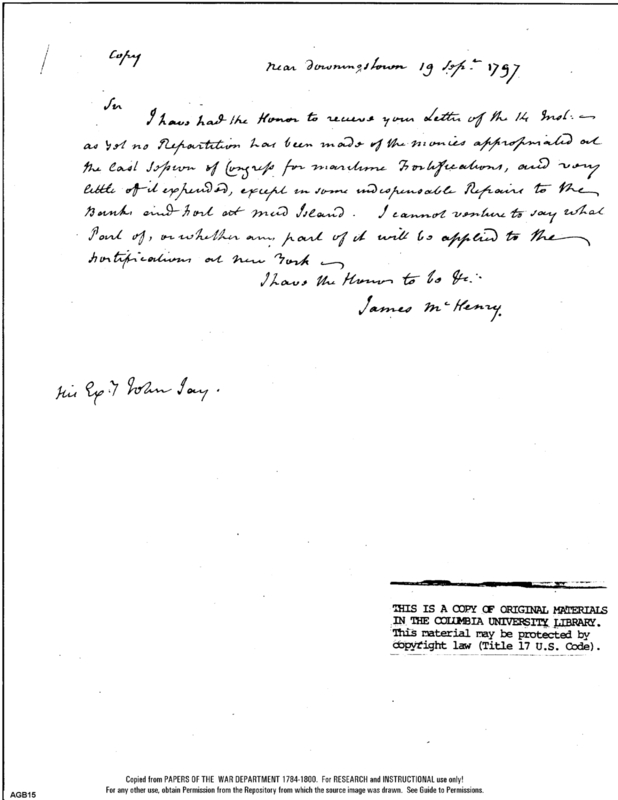 Copy
near Downingstown 19 Sepr. 1797
Sir
I have had the Honor to receive your Letter of the 14 Inst.
as yet no Repartition has been made of the monies appropriated at
the last Session of Congress for maritime Fortifications, and very
little of it expended, except in some indispensable Repairs to the
Banks and Fort at mud Island. I cannot venture to say what
Part of, or whether any part of it will be applied to the
Fortifications at New York
I have the Honor to be &c.
James McHenry.
His Exy. John Jay.
THIS IS A COPY OF ORIGINAL MATERIALS
IN THE COLUMBIA UNIVERSITY LIBRARY.
This material may be protected by
copyright law (Title 17 U.S. Code).
Copied from PAPERS OF THE WAR DEPARTMENT 1784-1800. For RESEARCH and INSTRUCTIONAL use only!
For any other use, obtain Permission from the Repository from which the source image was drawn. See Guide to Permissions.
AGB15